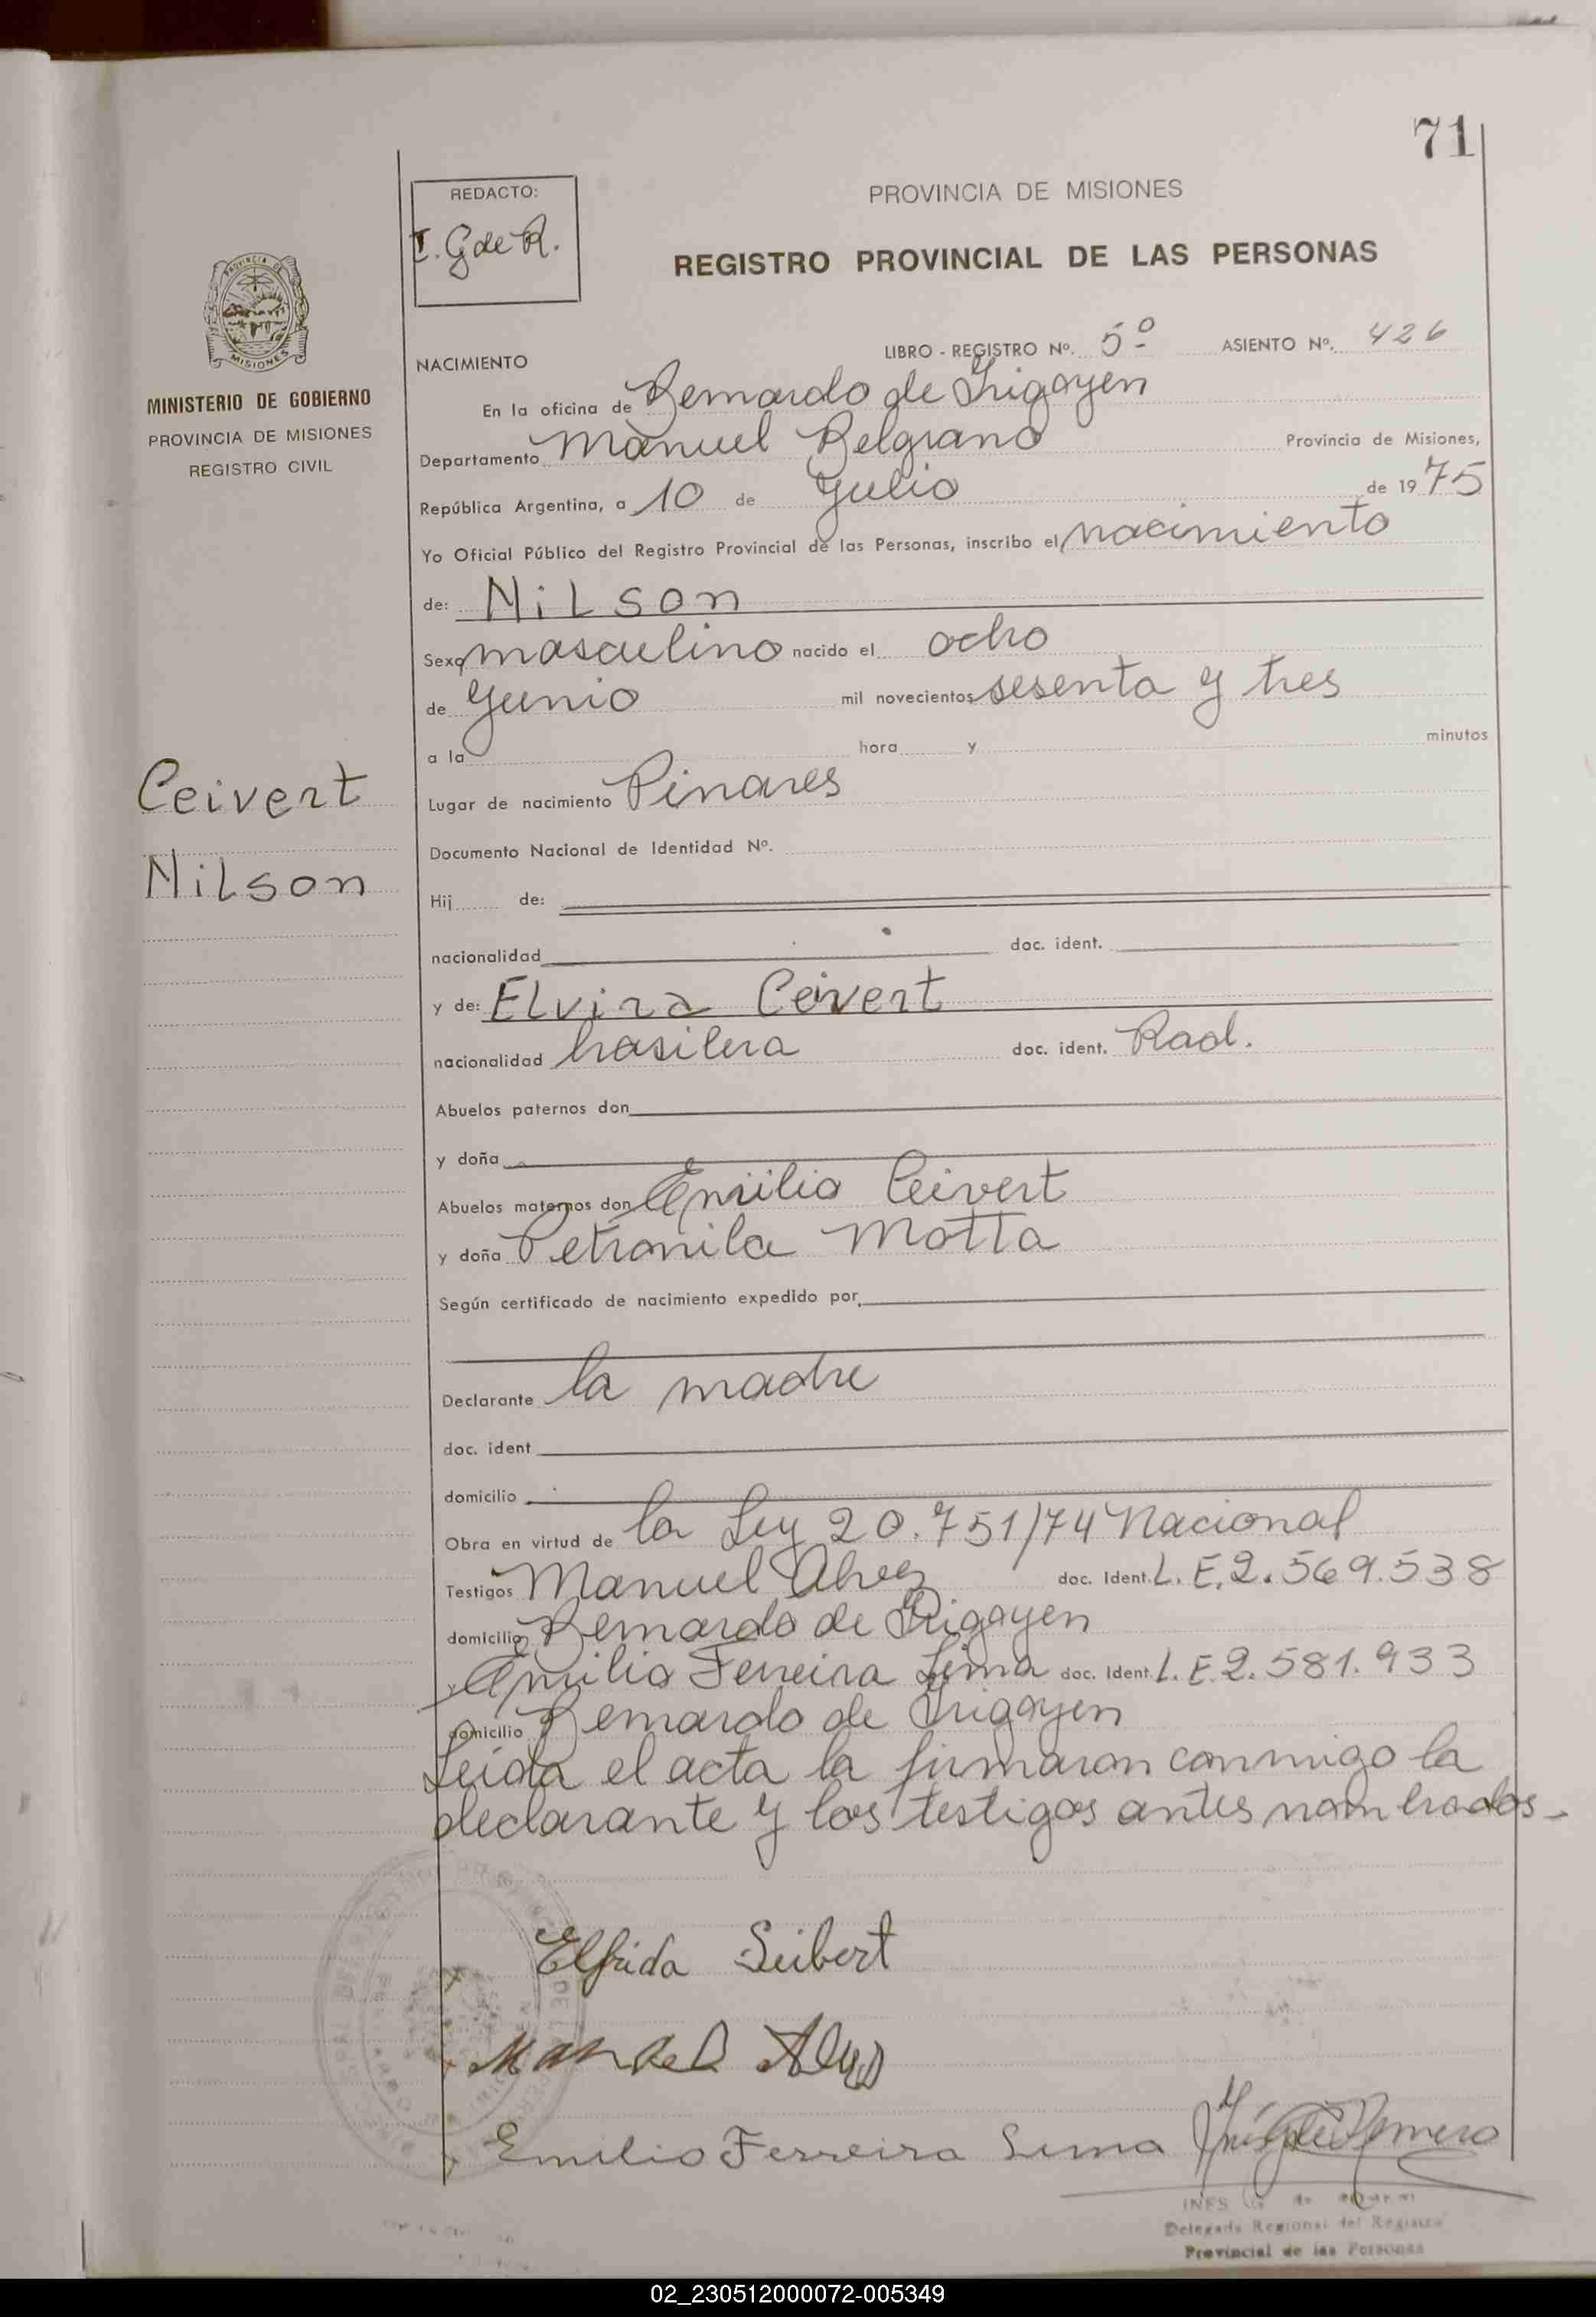 71
REDACTO:
I. G de R.
PROVINCIA DE MISIONES
REGISTRO PROVINCIAL DE LAS PERSONAS
MINISTERIO DE GOBIERNO
PROVINCIA DE MISIONES
REGISTRO CIVIL
NACIMIENTO LIBRO - REGISTRO Nº. 5º ASIENTO Nº. 426
En la oficina de Bernardo de Irigoyen
Departamento Manuel Belgrano Provincia de Misiones,
República Argentina, a 10 de Julio de 1975
Yo Oficial Público del Registro Provincial de las Personas, inscribo el nacimiento
de: NiLson
Sexo masculino nacido el ocho
de Junio mil novecientos sesenta y tres
a la hora y minutos
Ceivert
Lugar de nacimiento Pinares
Documento Nacional de Identidad Nº.
NiLson
Hij de:
nacionalidad doc. ident.
y de: ELvira Ceivert
nacionalidad brasilera doc. ident. Rad.
Abuelos paternos don
y doña
Abuelos maternos don Emilio Ceivert
y doña Petronila Motta
Según certificado de nacimiento expedido por
Declarante la madre
doc. ident
domicilio
Obra en virtud de la Ley 20.751/74 Nacional
Testigos Manuel Alvez doc. Ident. L. E. 2.569.538
domicilio Bernardo de Irigoyen
y Emilio Ferreira Lima doc. Ident. L. E. 2.581.933
domicilio Bernardo de Irigoyen
Leída el acta la firmaron conmigo la
declarante y los testigos antes nombrados-
Elfrida Seibert
Manuel Alves
Emilio Ferreira Lima
INES G de
Delegada Regional del Registro
Provincial de las Personas
02_230512000072-005349